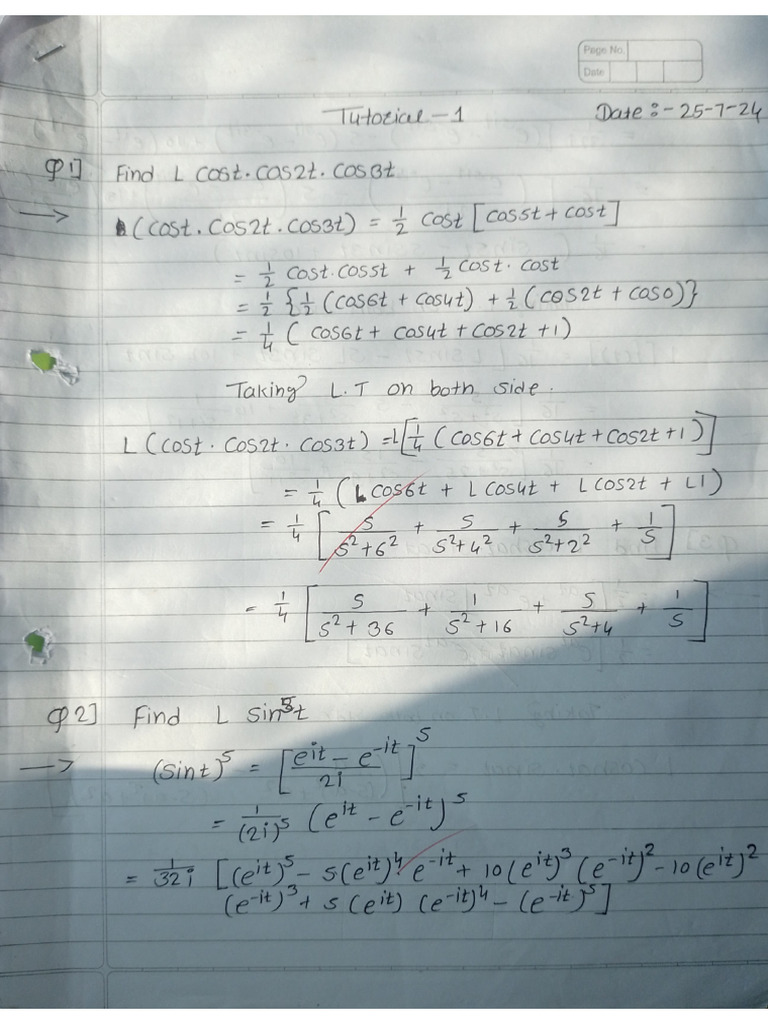 Page No.
Date
Tutorial - 1 Date :- 25-7-24
Q1] Find L cost. cos2t. cos3t
→ (cost. cos2t. cos3t) = 1/2 cost [cos5t + cost]
= 1/2 cost. cos5t + 1/2 cost. cost
= 1/2 {1/2 (cos6t + cos4t) + 1/2 (cos2t + cos0)}
= 1/4 ( cos6t + cos4t + cos2t + 1)
Taking L.T on both side.
L (cost. cos2t. cos3t) = L[1/4 (cos6t + cos4t + cos2t + 1)]
= 1/4 (L cos6t + L cos4t + L cos2t + L1)
= 1/4 [ s/(s²+6²) + s/(s²+4²) + s/(s²+2²) + 1/s ]
= 1/4 [ s/(s²+36) + 1/(s²+16) + s/(s²+4) + 1/s ]
Q2] Find L Sin⁵t
→ (Sint)⁵ = [ (e^it - e^-it)/2i ]⁵
= 1/(2i)⁵ (e^it - e^-it)⁵
= 1/32i [(e^it)⁵ - 5(e^it)⁴. e^-it + 10(e^it)³ (e^-it)² - 10(e^it)²
(e^-it)³ + 5 (e^it) (e^-it)⁴ - (e^-it)⁵]